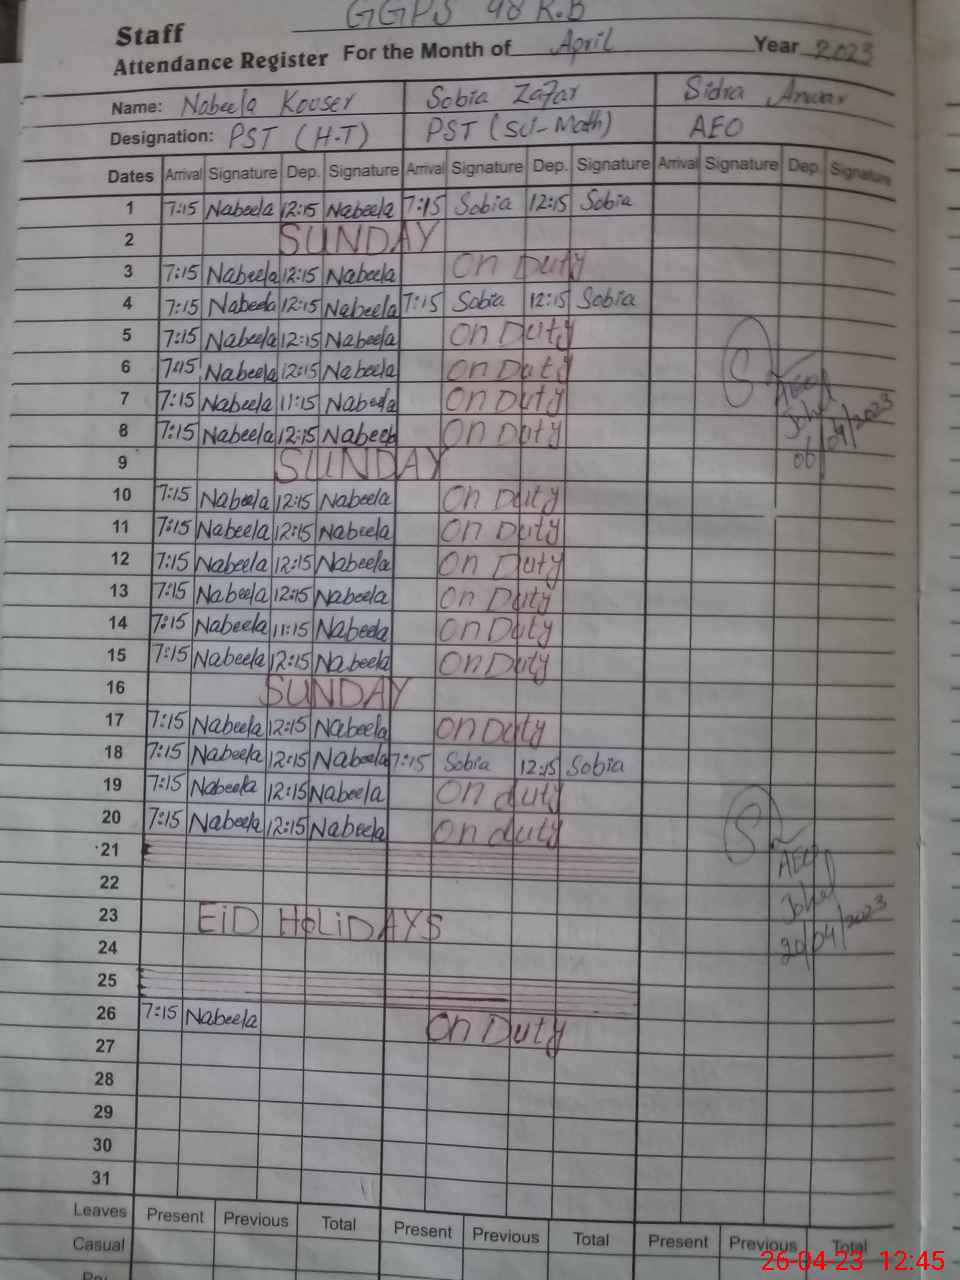 GGPS 48 R.B
Staff
Attendance Register For the Month of April Year 2023
Name: Nabeela Kouser Sobia Zafar Sidra Anwar
Designation: PST (H-T) PST (SCI-Math) AEO
Dates Arrival Signature Dep. Signature Arrival Signature Dep. Signature Arrival Signature Dep. Signature
1 7:15 Nabeela 12:15 Nabeela 7:15 Sobia 12:15 Sobia
2 SUNDAY
3 7:15 Nabeela 12:15 Nabeela On Duty
4 7:15 Nabeela 12:15 Nabeela 7:15 Sobia 12:15 Sobia
5 7:15 Nabeela 12:15 Nabeela On Duty
6 7:15 Nabeela 12:15 Nabeela On Duty
7 7:15 Nabeela 11:15 Nabeela On Duty
AEO
8 7:15 Nabeela 12:15 Nabeela On Duty
06/04/2023
9 SUNDAY
10 7:15 Nabeela 12:15 Nabeela On Duty
11 7:15 Nabeela 12:15 Nabeela On Duty
12 7:15 Nabeela 12:15 Nabeela On Duty
13 7:15 Nabeela 12:15 Nabeela On Duty
14 7:15 Nabeela 11:15 Nabeela On Duty
15 7:15 Nabeela 12:15 Nabeela On Duty
16 SUNDAY
17 7:15 Nabeela 12:15 Nabeela On Duty
18 7:15 Nabeela 12:15 Nabeela 7:15 Sobia 12:15 Sobia
19 7:15 Nabeela 12:15 Nabeela On duty
20 7:15 Nabeela 12:15 Nabeela On duty
21 AEO
22
23 EiD HOLiDAYS
24 20/04/2023
25
26 7:15 Nabeela On Duty
27
28
29
30
31
Leaves Present Previous Total Present Previous Total Present Previous Total
Casual
26-04-23 12:45